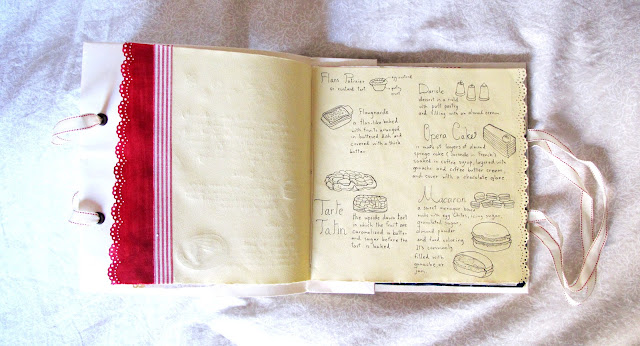 Flans Patissier
or custard tart
egg custard
pastry crust
Flaugnarde
is flan-like baked
with fruits arranged
in buttered dish and
covered with a thick
batter
Tarte
Tatin
the upside down tart
in which the fruit are
caramelized in butter
and sugar before the
tart is baked
Dariole
dessert in a mold
with puff pastry
and filling with an almond cream
Opera Cake
is made of layers of almond
sponge cake
soaked in coffee syrup, layered with
ganache and coffee butter cream,
and cover with a chocolate glaze
Macaron
a sweet meringue based
made with egg whites, icing sugar,
granulated sugar,
almond powder
and food coloring
It's commonly
filled with
ganache or
jam